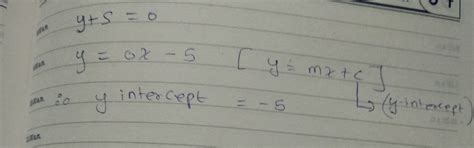 y+5 = 0
y = 0x - 5 [ y = mx + c ]
∴ y intercept = -5 ↳ (y-intercept)